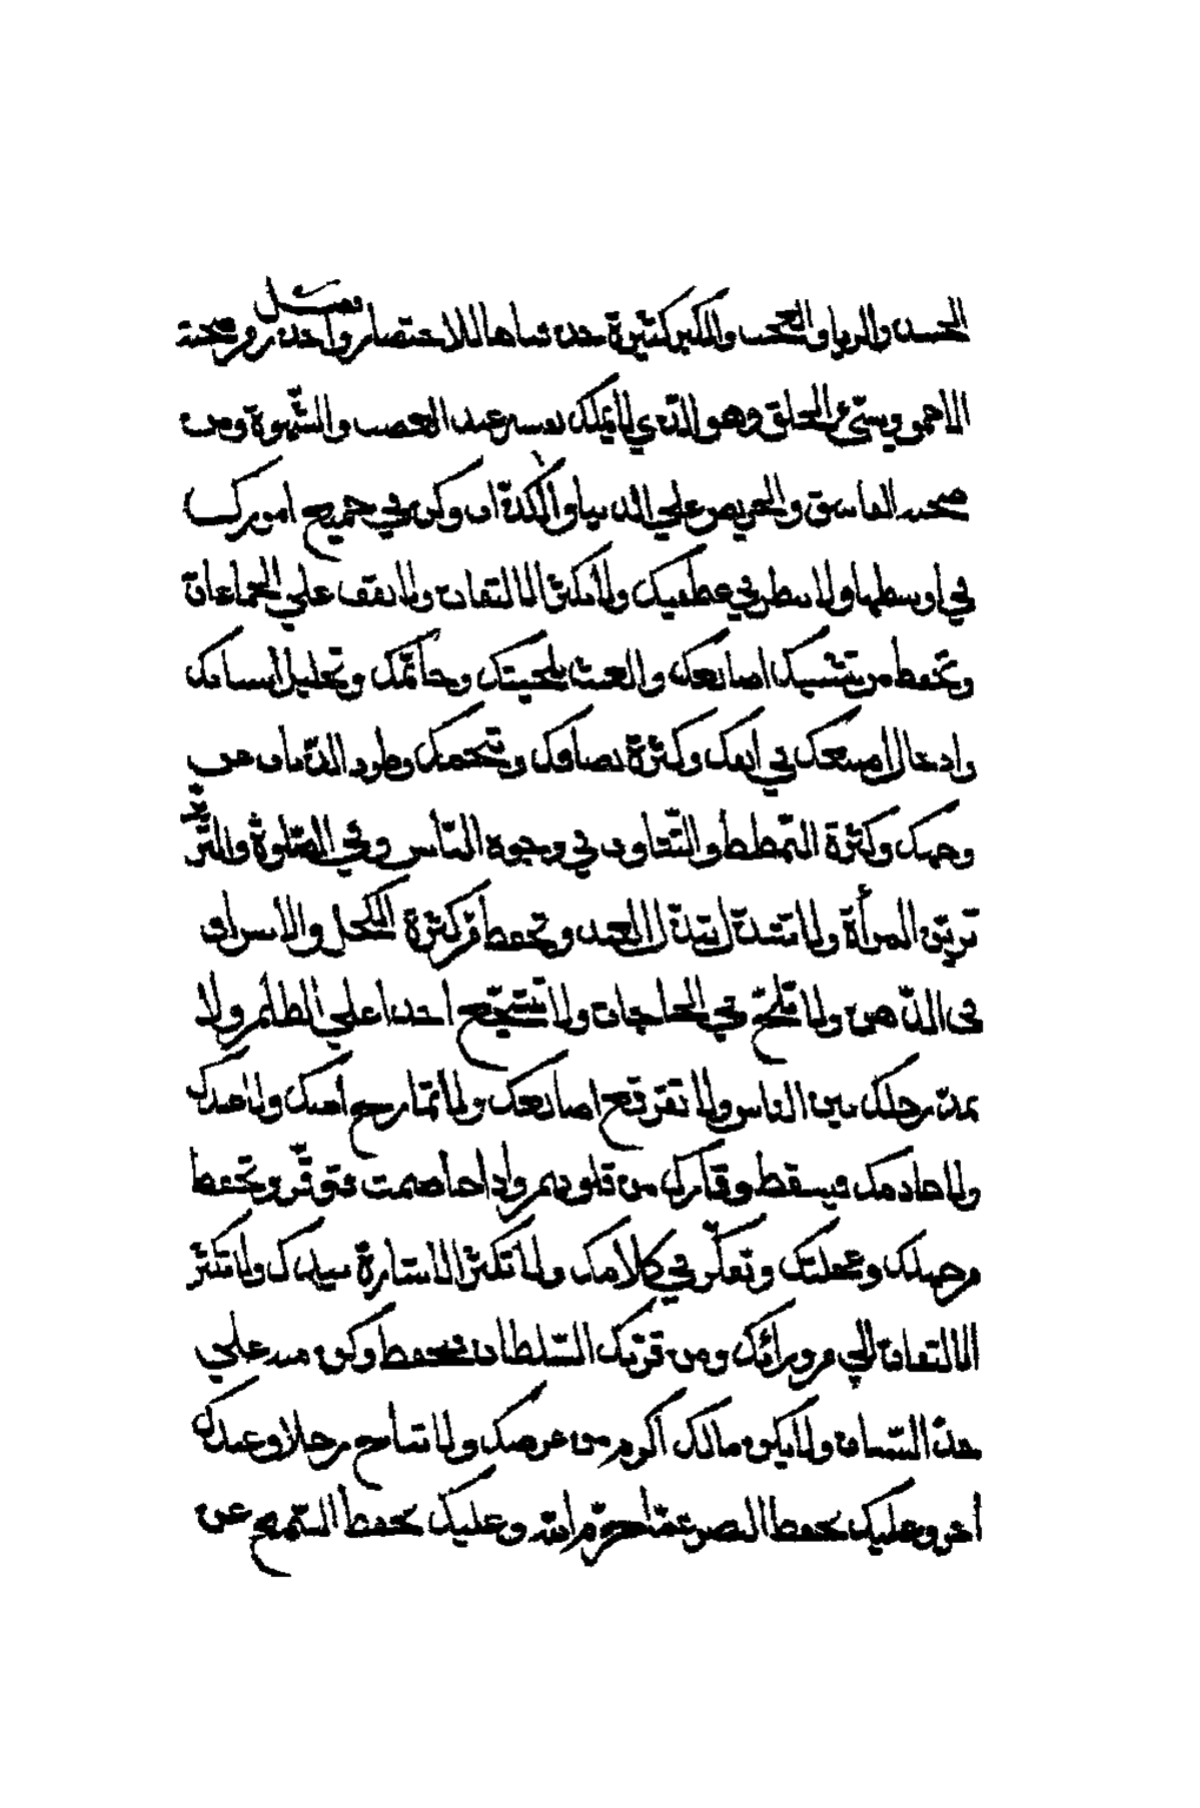 الحسد والريا والعجب والكبر كثيرة حذفناها للاختصار فصل واحذر من صحبة
الاحمق وسيّئ الخلق وهو الذي لا يملك نفسه عند الغضب والشهوة ومن
صحبة الفاسق والحريص علي الدنيا والكذّاب وكن في جميع امورك
في اوسطها ولا تنظر في عطفيك ولا تكثر الالتفات ولا تقف علي الجماعات
وتحفظ من تشبيك اصابعك والعبث بلحيتك وخاتمك وتخليل اسنانك
وادخال اصبعك في انفك وكثرة بصاقك وتنخمك وطرد الذباب عن
وجهك وكثرة التمطط والتثاوب في وجوه الناس وفي الصلوة
تزين المرأة ولا تتبذل تبذل العبد وتحفظ من كثرة الكحل والاسراف
في الدهن ولا تلح في الحاجات ولا تشجع احدا علي الظلم ولا
تمد رجلك بين الناس ولا تفرقع اصابعك ولا تمازح امتك ولا عبدك
ولا خادمك فيسقط وقارك من قلوبهم واذا خاصمت فتوقر وتحفظ
من جهلك وعجلتك وتفكر في كلامك ولا تكثر الاشارة بيدك ولا تكثر
الالتفات الي من ورائك ومن قربك السلطان فتحفظ وكن منه علي
حذ السنان ولا يكن مالك اكرم من عرضك ولا تسامح رجلا وعبدك
اخر وعليك بحفظ البصر عمّا حرّم الله وعليك بحفظ السمع عن